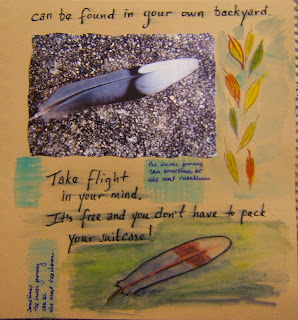 can be found in your own backyard.
The inner journey
can sometimes be
the most treacherous.
Take flight
in your mind.
It's free and you don't have to pack
your suitcase!
Sometimes
the inner journey
can be
the most treacherous.